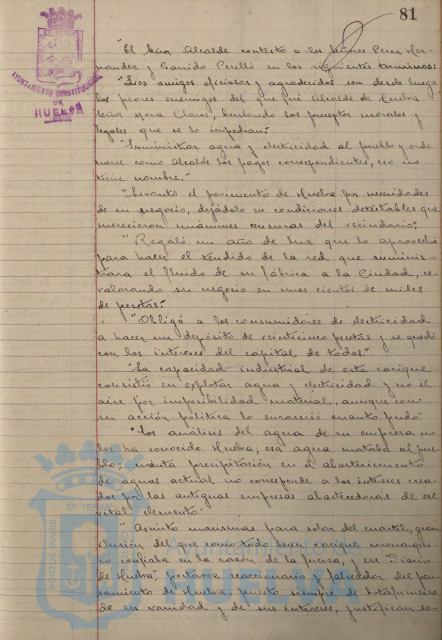 81
AYUNTAMIENTO CONSTITUCIONAL
DE
HUELVA
"El Señor Alcalde contestó a los señores Perez Her-
nandez y Garrido Perelló en los siguientes terminos:
"Los amigos oficiosos y agradecidos son desde luego
los peores enemigos del que fué Alcalde de Huelva
señor Mora Claros, burlando los preceptos morales y
legales que se lo impedian."
"Suministrar agua y electricidad al pueblo y orde-
narse como Alcalde los pagos correspondientes, eso no
tiene nombre."
"Levantó el pavimento de Huelva por necesidades
de su negocio, dejándolo en condiciones detestables que
merecieron unánimes censuras del vecindario."
"Regaló un año de luz que lo aprovechó
para hacer el tendido de la red que suminis-
trara el fluido de su fábrica a la Ciudad, re-
valorando su negocio en unos cientos de miles
de pesetas."
"Obligó a los consumidores de electricidad
a hacer un depósito de veinticinco pesetas y se quedó
con los intereses del capital de todos."
"La capacidad industrial de este cacique
consistió en explotar agua y electricidad y no el
aire por imposibilidad material, aunque con
su acción política lo enrareció cuanto pudo"
"Los análisis del agua de su empresa no
los ha conocido Huelva; esa agua mataba al pue-
blo; cuánta precipitación en el abastecimiento
de aguas actual no corresponde a los intereses crea-
dos por las antiguas empresas abastecedoras de ese
vital elemento."
"Asunto marismas para solar del cuartel, gran
ilusión del que como todo buen cacique monárqui-
co confiaba en la razón de la fuerza, y en "Diario
de Huelva", portavoz reaccionario y falseador del pen-
samiento de Huelva, puesto siempre de
de su vanidad y de sus intereses, justifican so-
PORTUS MARIS
ET TERRAE
Ayuntamiento de